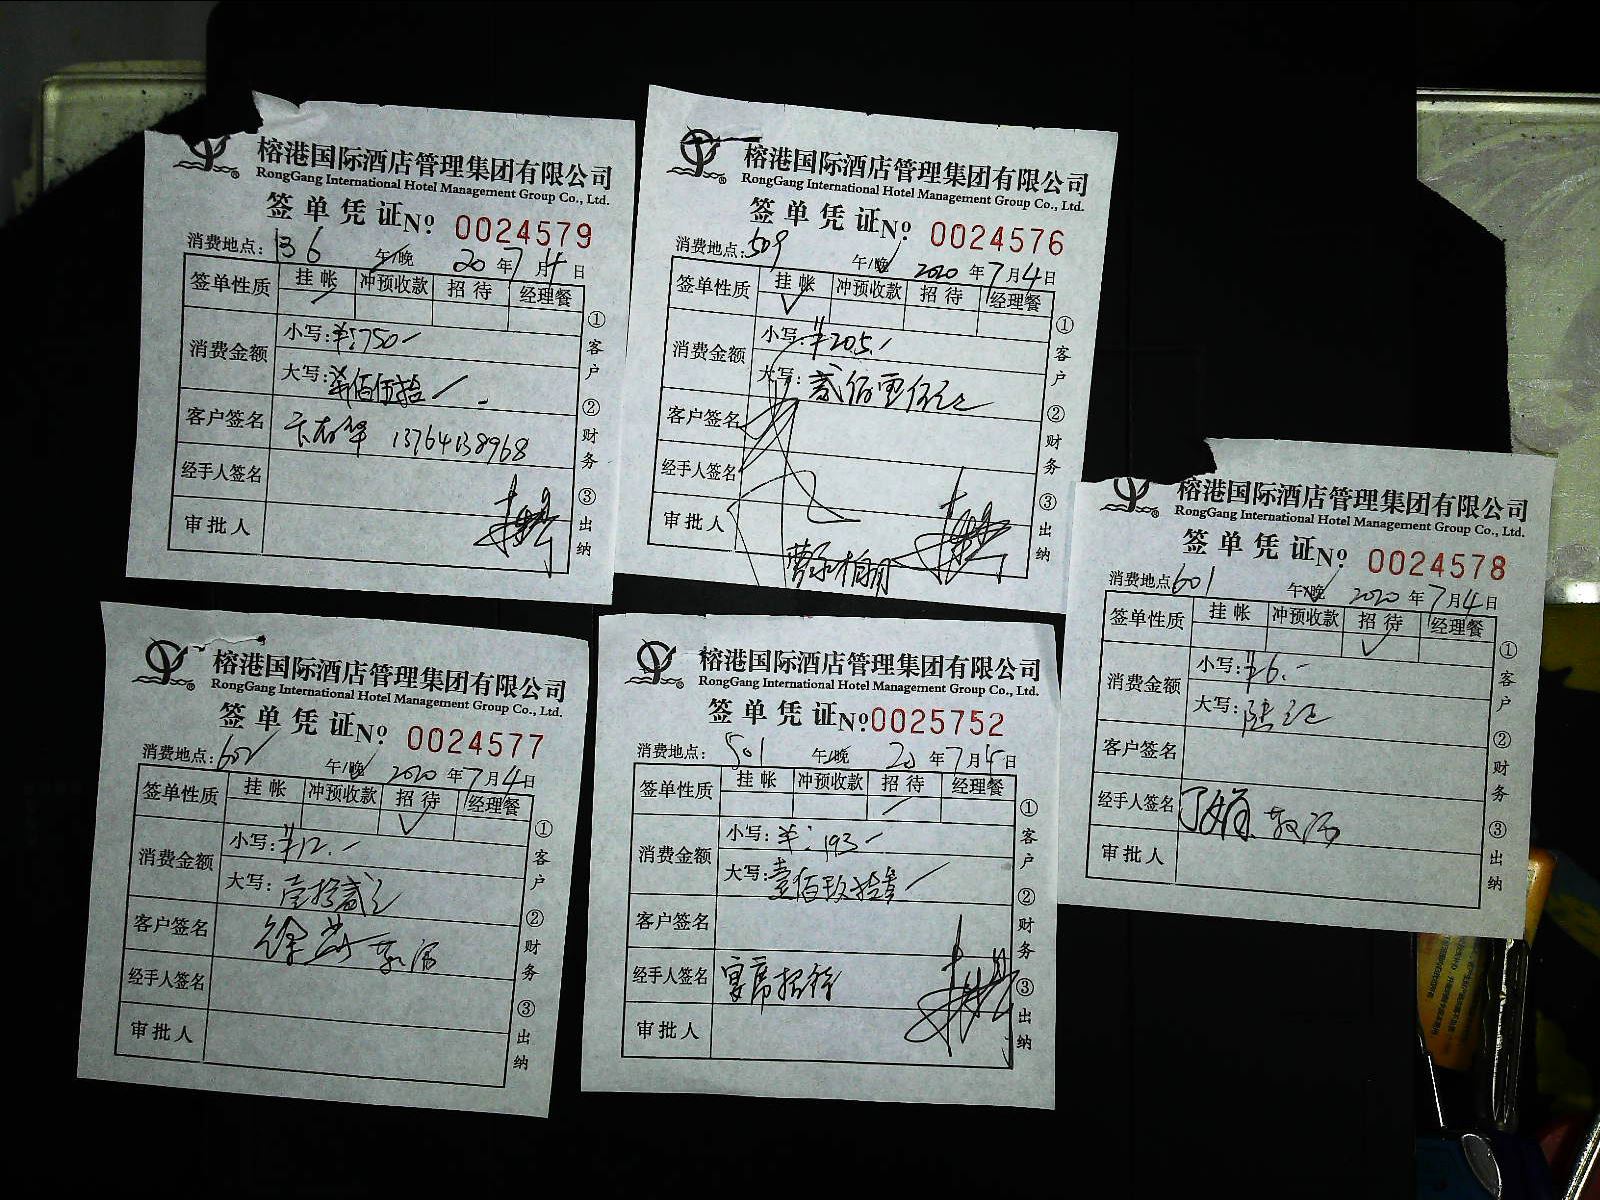 榕港国际酒店管理集团有限公司
RongGang International Hotel Management Group Co., Ltd.
签单凭证 No: 0024579
消费地点: 136 午/晚 20年7月4日
签单性质 挂帐 冲预收款 招待 经理餐
消费金额 小写: ¥:750
大写: 柒佰伍拾
客户签名 13764138968
经手人签名
审批人
①客户 ②财务 ③出纳
榕港国际酒店管理集团有限公司
RongGang International Hotel Management Group Co., Ltd.
签单凭证 No: 0024576
消费地点: 509 午/晚 2020年7月4日
签单性质 挂帐 冲预收款 招待 经理餐
消费金额 小写: ¥205.
大写: 贰佰零伍元
客户签名
经手人签名
审批人
①客户 ②财务 ③出纳
榕港国际酒店管理集团有限公司
RongGang International Hotel Management Group Co., Ltd.
签单凭证 No: 0024578
消费地点 601 午/晚 2020年7月4日
签单性质 挂帐 冲预收款 招待 经理餐
消费金额 小写: ¥6.
大写: 陆元
客户签名
经手人签名
审批人
①客户 ②财务 ③出纳
榕港国际酒店管理集团有限公司
RongGang International Hotel Management Group Co., Ltd.
签单凭证 No: 0024577
消费地点: 602 午/晚 2020年7月4日
签单性质 挂帐 冲预收款 招待 经理餐
消费金额 小写: ¥12.
大写: 壹拾贰元
客户签名
经手人签名
审批人
①客户 ②财务 ③出纳
榕港国际酒店管理集团有限公司
RongGang International Hotel Management Group Co., Ltd.
签单凭证 No: 0025752
消费地点: 501 午/晚 20年7月4日
签单性质 挂帐 冲预收款 招待 经理餐
消费金额 小写: ¥:193
大写: 壹佰玖拾叁
客户签名
经手人签名 宴席招待
审批人
①客户 ②财务 ③出纳